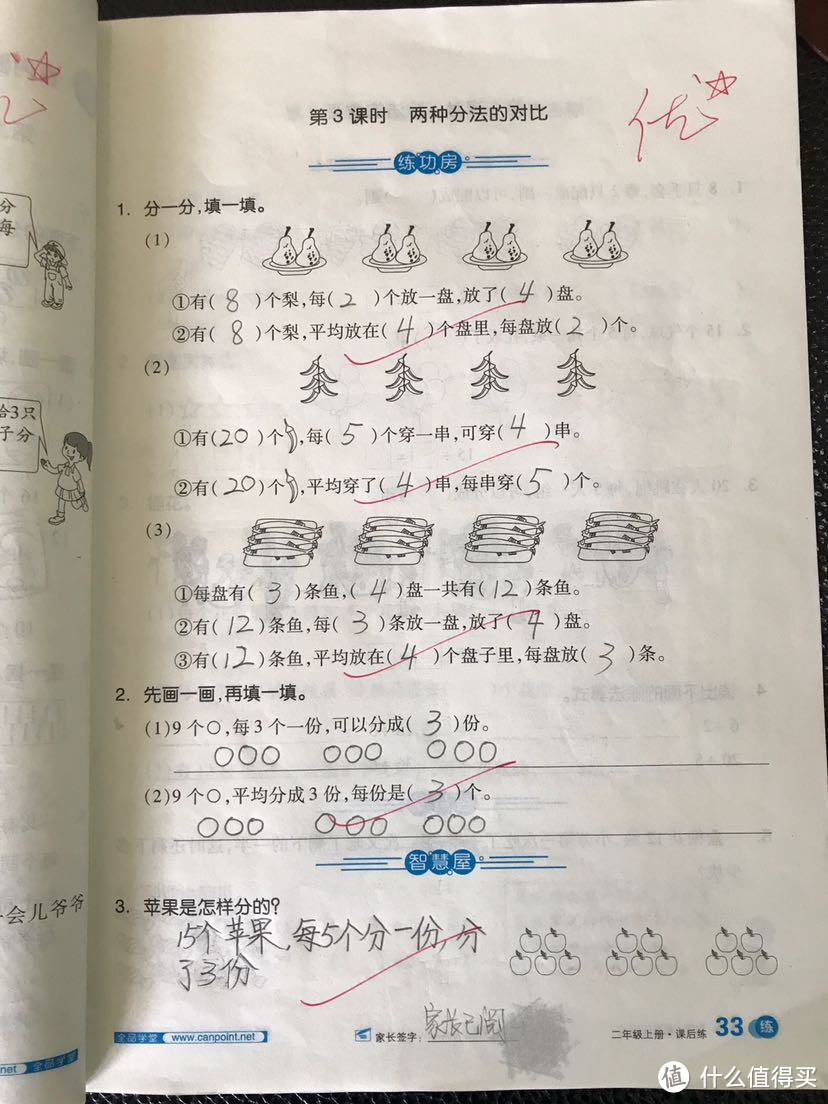 第3课时 两种分法的对比
优
练功房
1. 分一分,填一填。
(1)
①有( 8 )个梨,每( 2 )个放一盘,放了( 4 )盘。
②有( 8 )个梨,平均放在( 4 )个盘里,每盘放( 2 )个。
(2)
①有(20)个,每( 5 )个穿一串,可穿( 4 )串。
②有(20)个,平均穿了( 4 )串,每串穿( 5 )个。
(3)
①每盘有( 3 )条鱼,( 4 )盘一共有(12)条鱼。
②有(12)条鱼,每( 3 )条放一盘,放了( 4 )盘。
③有(12)条鱼,平均放在( 4 )个盘子里,每盘放( 3 )条。
2. 先画一画,再填一填。
(1)9个○,每3个一份,可以分成( 3 )份。
○○○ ○○○ ○○○
(2)9个○,平均分成3份,每份是( 3 )个。
○○○ ○○○ ○○○
智慧屋
3. 苹果是怎样分的?
15个苹果,每5个分一份,分
了3份
全品学堂 www.canpoint.net
家长签字: 家长已阅
二年级上册·课后练 33 练
分
每
给3只
子分
会儿爷爷
net 全品学堂
值 什么值得买